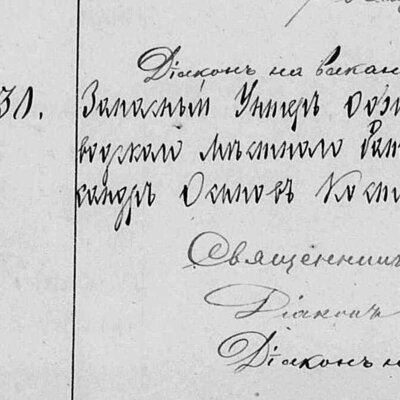 Діаконъ на вакан
31. Запасный Унтеръ Офи
водскаго мѣстнаго Бат
сандръ Осиповъ Кост
Священник
Діаконъ
Діаконъ н